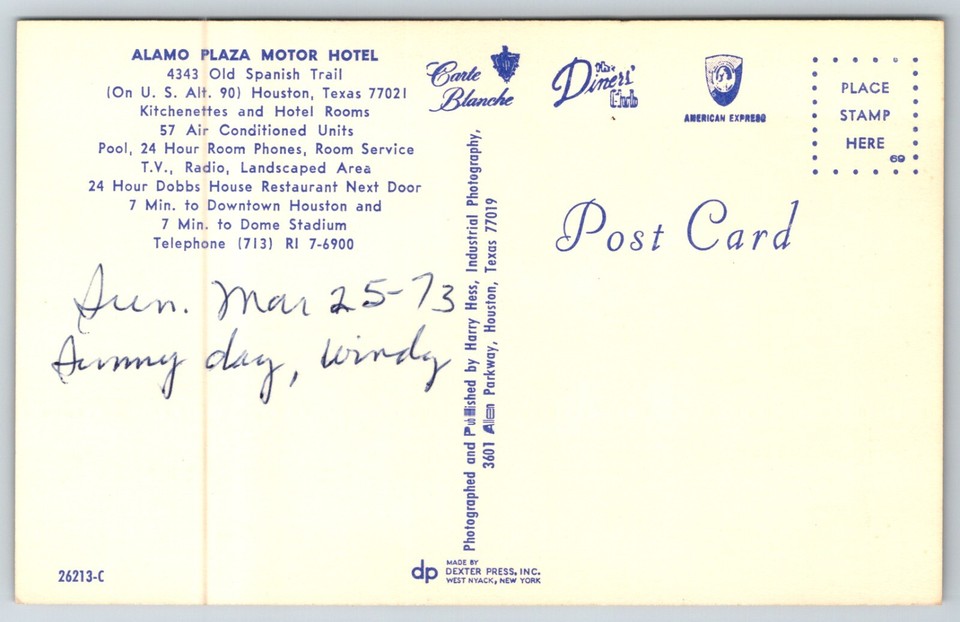 ALAMO PLAZA MOTOR HOTEL
4343 Old Spanish Trail
(On U. S. Alt. 90) Houston, Texas 77021
Kitchenettes and Hotel Rooms
57 Air Conditioned Units
Pool, 24 Hour Room Phones, Room Service
T.V., Radio, Landscaped Area
24 Hour Dobbs House Restaurant Next Door
7 Min. to Downtown Houston and
7 Min. to Dome Stadium
Telephone (713) RI 7-6900
Sun. Mar 25-73
Sunny day, windy
26213-C
Photographed and Published by Harry Hess, Industrial Photography,
3601 Allen Parkway, Houston, Texas 77019
dp
MADE BY
DEXTER PRESS, INC.
WEST NYACK, NEW YORK
Carte
Blanche
The
Diners'
Club
AMERICAN EXPRESS
PLACE
STAMP
HERE
69
Post Card